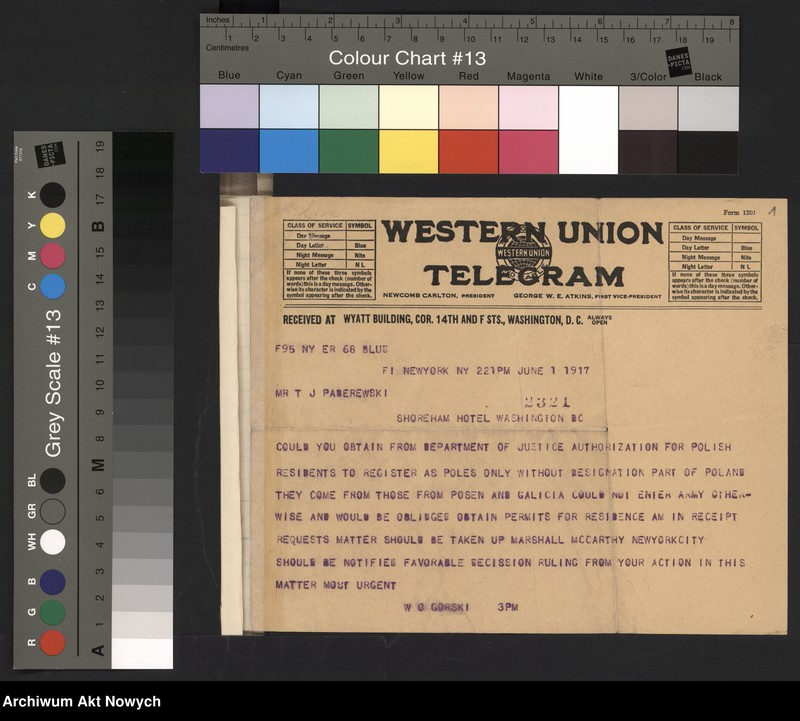 Inches 1 2 3 4 5 6 7 8
1 2 3 4 5 6 7 8 9 10 11 12 13 14 15 16 17 18 19
Centimetres
Colour Chart #13
DANES
PICTA
.COM
Blue Cyan Green Yellow Red Magenta White 3/Color Black
DANES
PICTA
.COM
Grey Scale #13
R G B WH GR BL C M Y K
A 1 2 3 4 5 6 M 8 9 10 11 12 13 14 15 B 17 18 19
Form 1201
1
CLASS OF SERVICE SYMBOL
Day Message
Day Letter Blue
Night Message Nite
Night Letter N L
If none of these three symbols
appears after the check (number of
words) this is a day message. Other-
wise its character is indicated by the
symbol appearing after the check.
WESTERN UNION
WESTERN UNION
TELEGRAM
NEWCOMB CARLTON, PRESIDENT GEORGE W. E. ATKINS, FIRST VICE-PRESIDENT
CLASS OF SERVICE SYMBOL
Day Message
Day Letter Blue
Night Message Nite
Night Letter N L
If none of these three symbols
appears after the check (number of
words) this is a day message. Other-
wise its character is indicated by the
symbol appearing after the check.
RECEIVED AT WYATT BUILDING, COR. 14TH AND F STS., WASHINGTON, D. C. ALWAYS OPEN
F95 NY ER 68 BLUE
FI NEWYORK NY 221PM JUNE 1 1917
MR T J PADEREWSKI
2321
SHOREHAM HOTEL WASHINGTON DC
COULD YOU OBTAIN FROM DEPARTMENT OF JUSTICE AUTHORIZATION FOR POLISH
RESIDENTS TO REGISTER AS POLES ONLY WITHOUT DESIGNATION PART OF POLAND
THEY COME FROM THOSE FROM POSEN AND GALICIA COULD NOT ENTER ARMY OTHER-
WISE AND WOULD BE OBLIDGED OBTAIN PERMITS FOR RESIDENCE AM IN RECEIPT
REQUESTS MATTER SHOULD BE TAKEN UP MARSHALL MCCARTHY NEWYORKCITY
SHOULD BE NOTIFIED FAVORABLE DECISSION RULING FROM YOUR ACTION IN THIS
MATTER MOST URGENT
W O GORSKI 3PM
Archiwum Akt Nowych